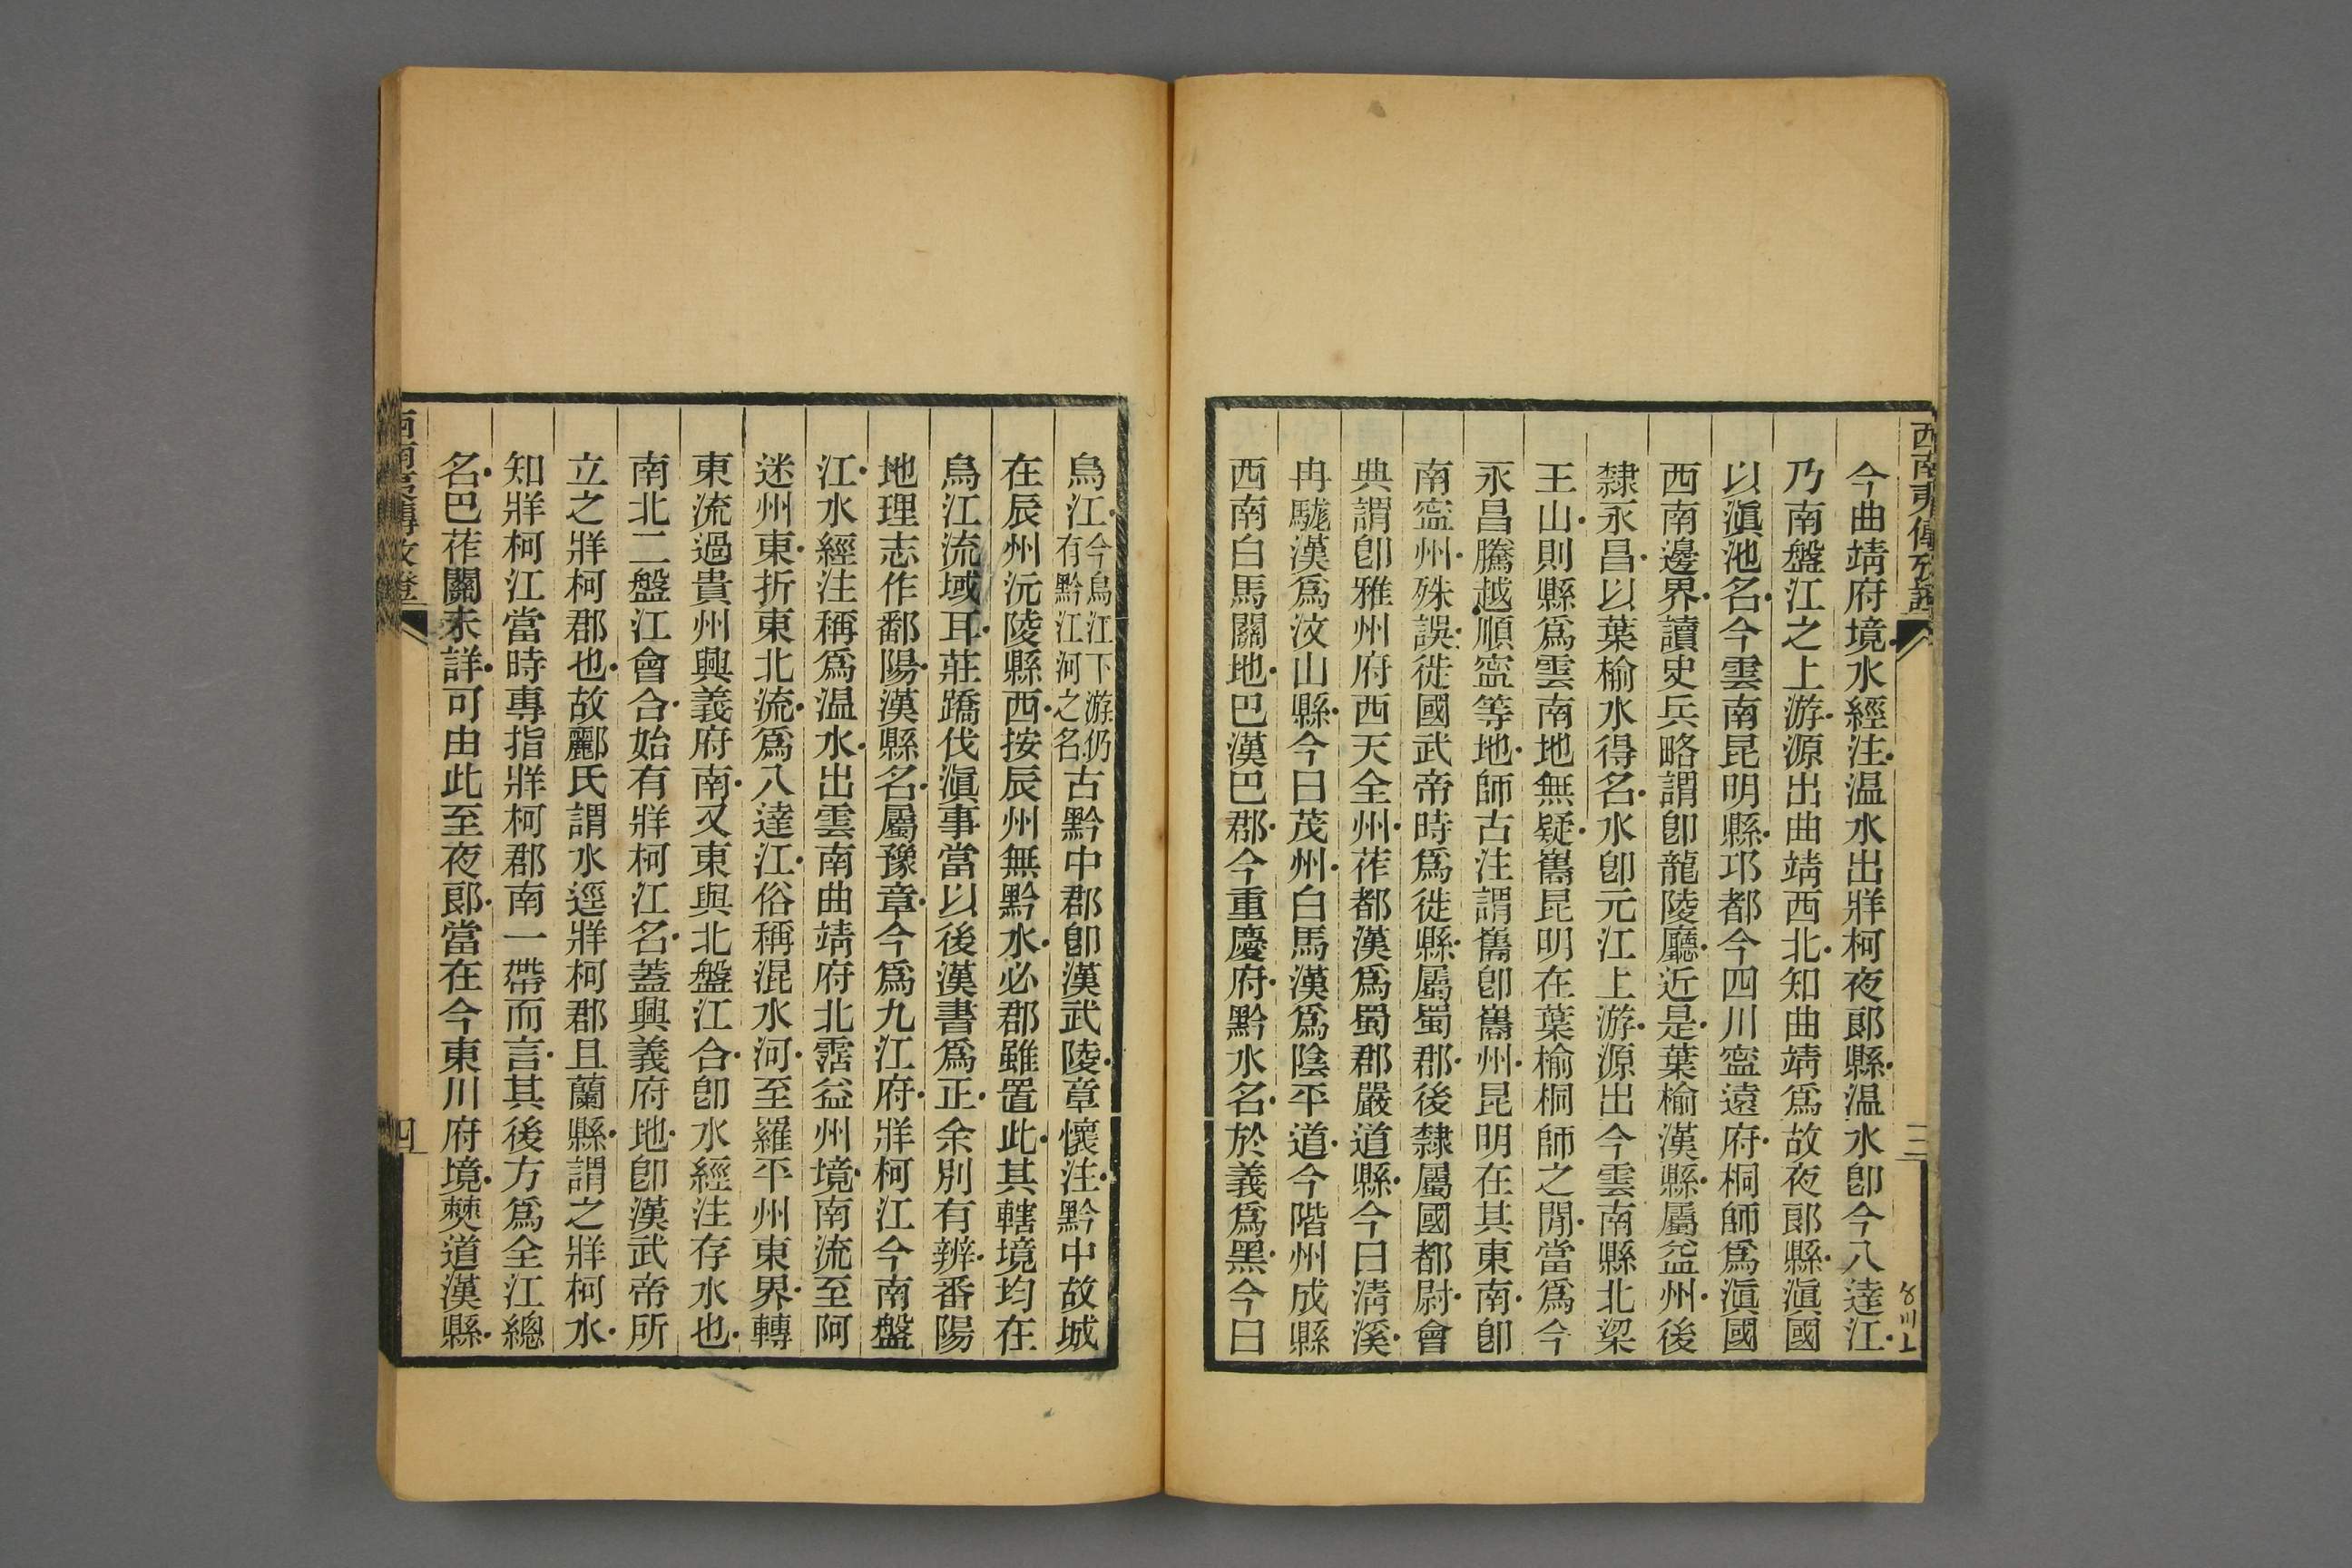 西南夷傳攷證
三
今曲靖府境水經注温水出牂柯夜郎縣温水卽今八達江
乃南盤江之上游源出曲靖西北知曲靖爲故夜郎縣滇國
以滇池名今雲南昆明縣邛都今四川寧遠府桐師爲滇國
西南邊界讀史兵略謂卽龍陵廳近是葉榆漢縣屬益州後
隸永昌以葉榆水得名水卽元江上游源出今雲南縣北梁
王山則縣爲雲南地無疑巂昆明在葉榆桐師之閒當爲今
永昌騰越順寧等地師古注謂巂卽巂州昆明在其東南卽
南寧州殊誤徙國武帝時爲徙縣屬蜀郡後隸屬國都尉會
典謂卽雅州府西天全州莋都漢爲蜀郡嚴道縣今曰淸溪
冉駹漢爲汶山縣今曰茂州白馬漢爲陰平道今階州成縣
西南白馬關地巴漢巴郡今重慶府黔水名於義爲黑今曰
烏江今烏江下游仍有黔江河之名古黔中郡卽漢武陵章懷注黔中故城
在辰州沅陵縣西按辰州無黔水必郡雖置此其轄境均在
烏江流域耳莊蹻伐滇事當以後漢書爲正余別有辨番陽
地理志作鄱陽漢縣名屬豫章今爲九江府牂柯江今南盤
江水經注稱爲温水出雲南曲靖府北霑益州境南流至阿
迷州東折東北流爲八達江俗稱混水河至羅平州東界轉
東流過貴州興義府南又東與北盤江合卽水經注存水也
南北二盤江會合始有牂柯江名蓋興義府地卽漢武帝所
立之牂柯郡也故酈氏謂水逕牂柯郡且蘭縣謂之牂柯水
知牂柯江當時專指牂柯郡南一帶而言其後方爲全江總
名巴莋關未詳可由此至夜郎當在今東川府境僰道漢縣
西南夷傳攷證
四